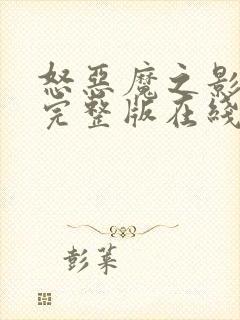 怒惡魔之影
完整版在綫
彭菜